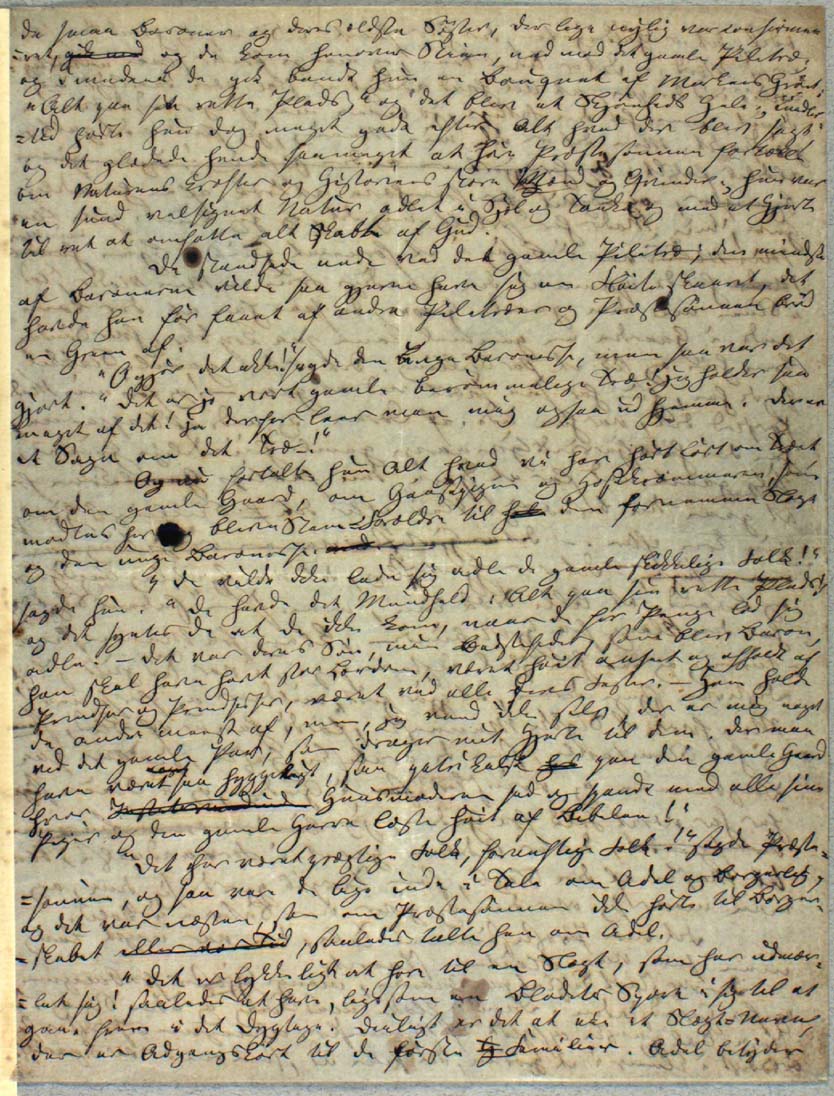 de smaa Baroner og deres ældste Søster, der lige nylig var confirmeret,
og de kom henover Stien, ned mod det gamle Piletræ,
og imedens de gik bandt hun en Bouquet af Markens
"Alt paa sin rette Plads" og det blev et Skjønheds Hele; imidlertid
hørte hun dog meget godt efter Alt hvad der blev sagt
og det glædede hende saameget at høre Præstesønnen fortælle
om Naturens Kræfter og Historiens store Mænd og Qvinder; hun var
en sund velsignet Natur adlet i Sjæl og Tanke og med et Hjerte
til ret at omfatte alt skabt af Gud.
De standsede nede ved det gamle Piletræ; den mindste
af Baronerne vilde saa gjerne have sig en Fløite skaaret, det
havde han før faaet af andre Piletræer og Præstesønnen brød
en Green af.
"O gjør det ikke!" sagde den unge Baronesse, men saa var det
gjort. "Det er jo vort gamle berømmelige Træ! jeg holder saa
meget af det! ja derfor leer man mig ogsaa ud hjemme. Der er
et Sagn om det Træ –!"
Og nu fortalte hun Alt hvad vi har hørt om Træet
om den gamle Gaard, om Gaasepigen og Hosekræmmeren, som
mødtes her og bleve Stamforældre til den fornemme Slægt
og den unge Baronesse.
"De vilde ikke lade sig adle de gamle skikkelige Folk!"
sagde hun. "De havde det Mundheld: Alt paa sin rette Plads!
og det syntes de at de ikke kom, naar de for Penge lod sig
adle. – Det var deres Søn, min Bedstefader, som blev Baron,
han skal have havt stor Lærdom, været høit anseet og afholdt af
Prindser og Prindsesser, været ved alle deres Fester. – Ham holde
de andre meest af, men, jeg veed ikke selv, der er mig noget
ved det gamle Par, som drager mit Hjerte til dem. Der maa
have været saa hyggeligt, saa patriarkalsk paa den gamle Gaard
hvor Huusmoderen sad og spandt med alle sine
Piger og den gamle Herre læste høit af Bibelen!"
"Det har været prægtige Folk, fornuftige Folk!" sagde Præstesønnen,
og saa vare de lige inde i Tale om Adel og Borgerlig,
og det var næsten, som om Præstesønnen ikke hørte til Borgerskabet
, saaledes talte han om Adel.
"Det er lykkeligt at høre til en Slægt, som har udmærket
sig! saaledes at have, ligesom en Blodets Spore i sig til at
gaae frem i det Dygtige. Deiligt er det at eie et Slægts-Navn,
der er Adgangskort til de første Familier. Adel betyder